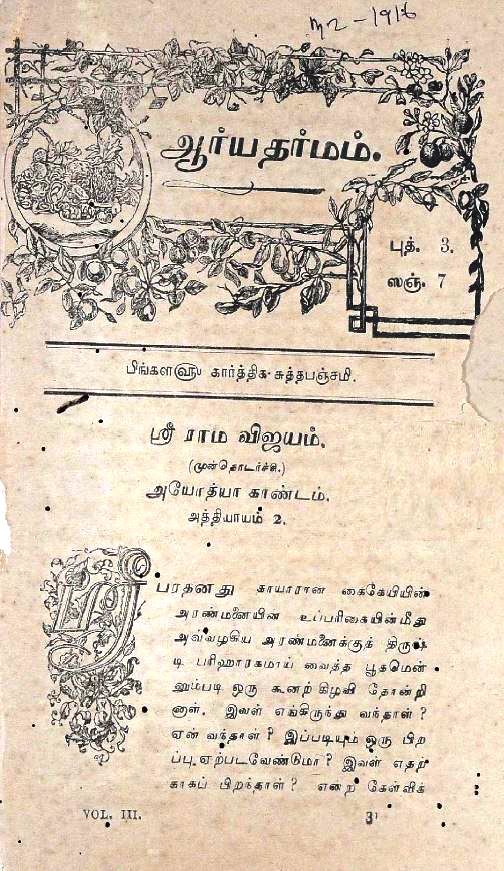 ஆர்யதர்மம்.
புத். 3.
ஸஞ். 7
பிங்கள௵ கார்த்திக-சுத்தபஞ்சமீ.
ஸ்ரீ ராம விஜயம்.
(முன்தொடர்ச்சி.)
அயோத்யா காண்டம்.
அத்தியாயம் 2.
ஸ்ரீ
பரதனது காயாரான கைகேயியின்
அரண்மனையின் உப்பரிகையின்மீது
அவ்வழகிய அரண்மனைக்குத் திருஷ்
டி பரிஹாரகமாய் வைத்த பூதமென்
னும்படி ஒரு கூனற் கிழவி தோன்றி
னாள். இவள் எங்கிருந்து வந்தாள் ?
ஏன் வந்தாள் ? இப்படியும் ஒரு பிற
ப்பு ஏற்படவேண்டுமா ? இவள் எதற்
காகப் பிறந்தாள் ? என்ற கேள்விக்
VOL. III.